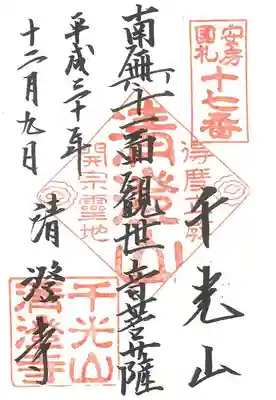 安房
國札
十七番
千光山
南無十一面観世音菩薩
清澄山
得度霊殿
開宗靈地
平成三十年
十二月九日
清澄寺
千光山
清澄寺